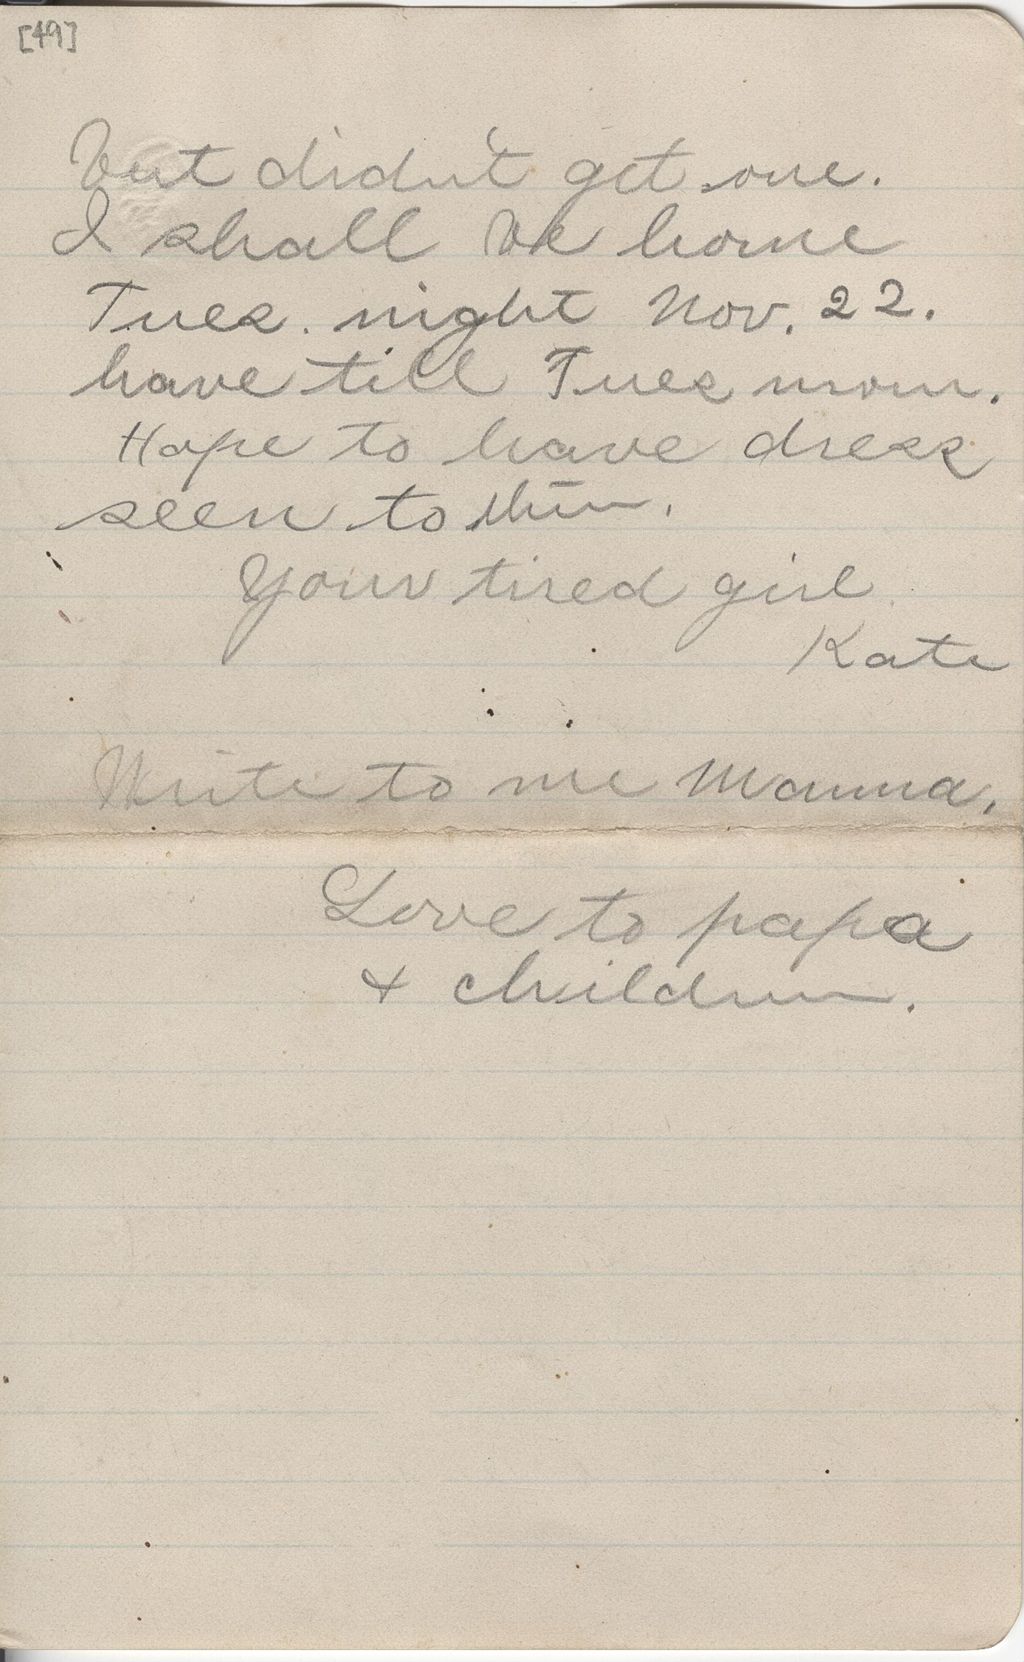 [49]
but didn't get one.
I shall be home
Tues. night Nov. 22.
have till Tues morn.
Hope to have dress
seen to then.
Your tired girl
Kate
Write to me Mamma.
Love to papa
& children.